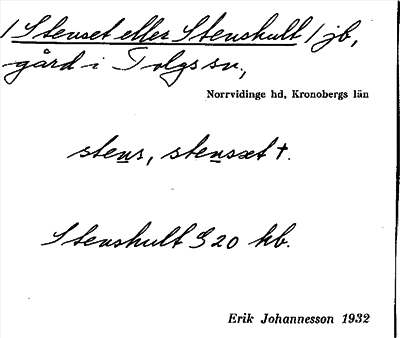 /Stenset eller Stenshult/ jb,
gård i Tolgs sn,
Norrvidinge hd, Kronobergs län
stens, stensæt †.
Stenshult S 20 kb.
Erik Johannesson 1932